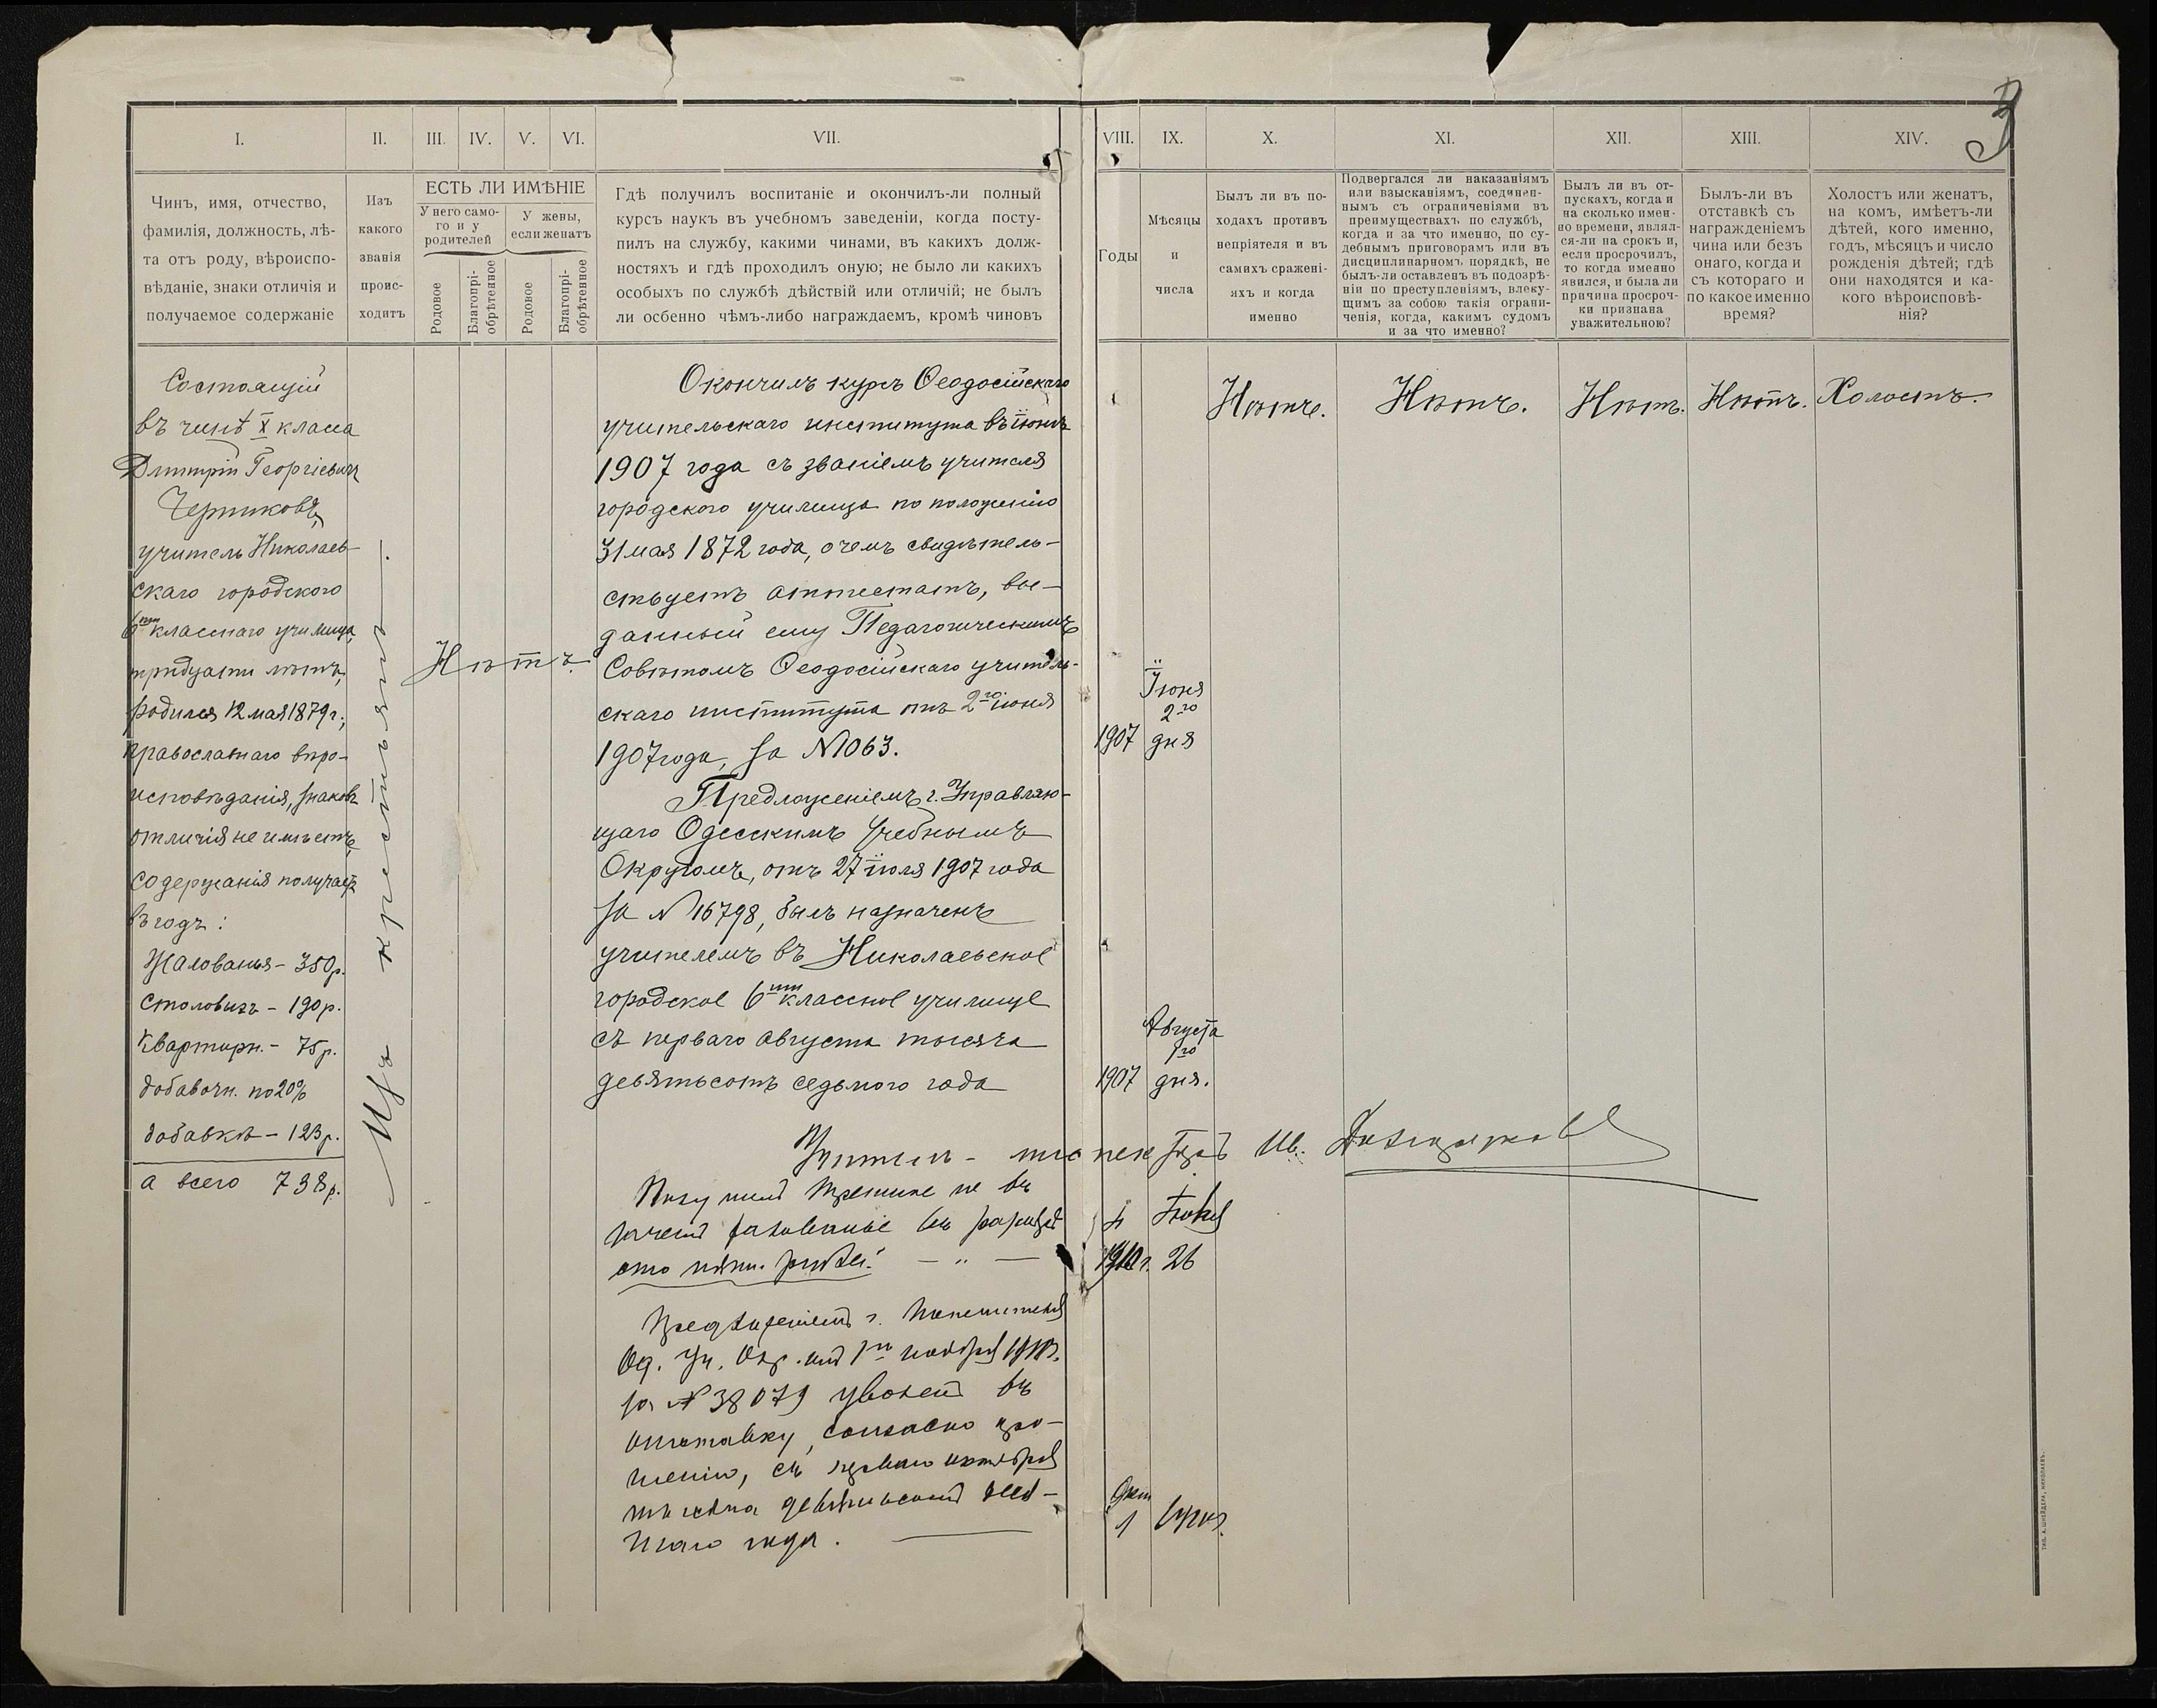 3
I.
II.
III.
IV.
V.
VI.
VII.
VIII.
IX.
X.
XI.
XII.
XIII.
XIV.
Чинъ, имя, отчество,
фамилія, должность, лѣ-
та отъ роду, вѣроиспо-
вѣданіе, знаки отличія и
получаемое содержаніе
Изъ
какого
званія
проис-
ходитъ
ЕСТЬ ЛИ ИМѢНІЕ
У него само-
го и у
родителей
У жены,
если женатъ
Родовое
Благопрі-
обрѣтенное
Родовое
Благопрі-
обрѣтенное
Гдѣ получилъ воспитаніе и окончилъ-ли полный
курсъ наукъ въ учебномъ заведеніи, когда посту-
пилъ на службу, какими чинами, въ какихъ долж-
ностяхъ и гдѣ проходилъ оную; не было ли какихъ
особыхъ по службѣ дѣйствій или отличій; не былъ
ли осбенно чѣмъ-либо награждаемъ, кромѣ чиновъ
Годы
Мѣсяцы
и
числа
Былъ ли въ по-
ходахъ противъ
непріятеля и въ
самихъ сражені-
яхъ и когда
именно
Подвергался ли наказаніямъ
или взысканіямъ, соединен-
нымъ съ ограниченіями въ
преимуществахъ по службѣ,
когда и за что именно, по су-
дебнымъ приговорамъ или въ
дисциплинарномъ порядкѣ, не
былъ-ли оставленъ въ подозрѣ-
ніи по преступленіямъ, влеку-
щимъ за собою такія ограни-
ченія, когда, какимъ судомъ
и за что именно?
Былъ ли въ от-
пускахъ, когда и
на сколько имен-
но времени, являл-
ся-ли на срокъ и,
если просрочилъ,
то когда именно
явился, и была ли
причина просроч-
ки признана
уважительною?
Былъ-ли въ
отставкѣ съ
награжденіемъ
чина или безъ
онаго, когда и
съ котораго и
по какое именно
время?
Холостъ или женатъ,
на комъ, имѣетъ-ли
дѣтей, кого именно,
годъ, мѣсяцъ и число
рожденія дѣтей; гдѣ
они находятся и ка-
кого вѣроисповѣ-
нія?
Состоящій
въ чинѣ X класса
Дмитрій Георгіевичъ
Черниковъ,
учитель Николаев-
скаго городского
6ти класснаго училища,
тридцати лѣтъ,
родился 12 мая 1879 г.,
православнаго вѣро-
исповѣданія, знаковъ
отличія не имѣетъ,
содержанія получаетъ
въ годъ:
Жалованья - 350 р.
Столовыхъ - 190 р.
Квартирн. - 75 р.
добавочн. по 20%
добавкѣ - 123 р.
а всего 738 р.
Изъ крестьянъ.
Нѣтъ.
Окончилъ курсъ Ѳеодосійскаго
учительскаго института въ іюнѣ
1907 года съ званіемъ учителя
городского училища по положенію
31 мая 1872 года, о чемъ свидѣтель-
ствуетъ аттестатъ, вы-
данный ему Педагогическимъ
Совѣтомъ Ѳеодосійскаго учитель-
скаго института отъ 2го іюня
1907 года, за №1063.
Предложеніемъ г. Управляю-
щаго Одесскимъ Учебнымъ
Округомъ, отъ 27 іюля 1907 года
за №16798, былъ назначенъ
учителемъ въ Николаевское
городское 6ти классное училище
съ перваго августа тысяча
девятьсотъ седьмого года
Іюня
2го
1907 дня
Августа
1го
1907 дня.
Нѣтъ.
Нѣтъ.
Нѣтъ.
Нѣтъ.
Холостъ.
Учитель - инспекторъ Ив.
1910 г. 26
г. Попечителя
Од. Уч. Окр. отъ 1го ноября 1910 г.
за №38079 уволенъ въ
отставку, согласно про-
шенію, съ перваго октября
тысяча девятьсотъ деся-
таго года.
Окт
1
ТИП. А. ШНЕЙДЕРА, НИКОЛАЕВЪ.